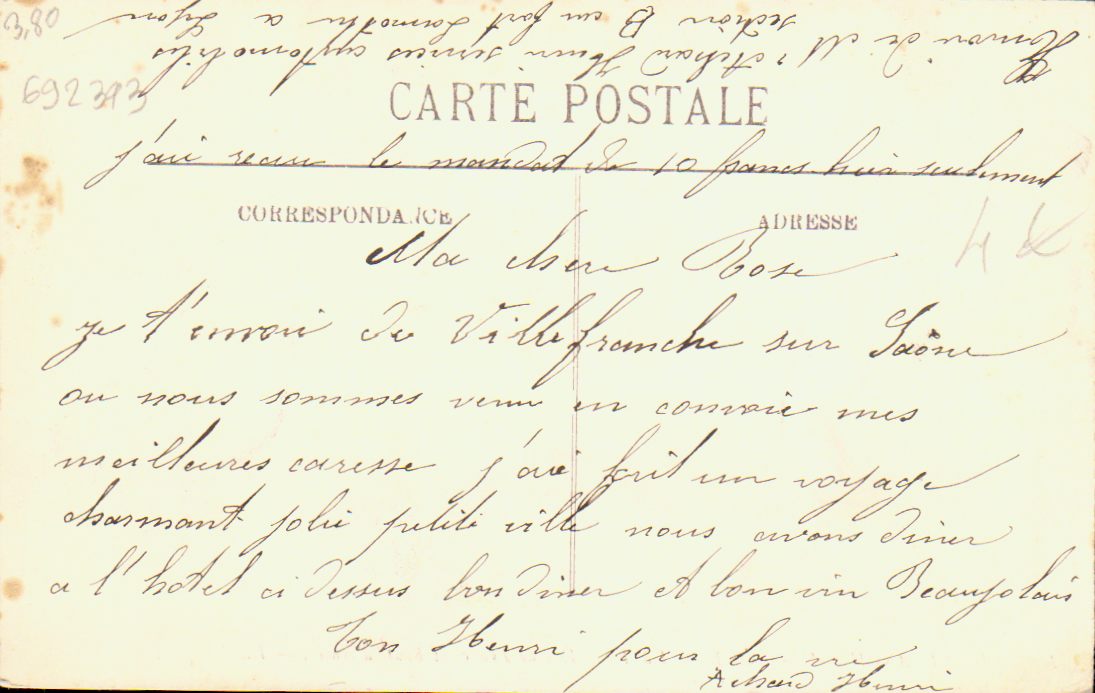 3,80
692393
Henri services automobiles
section B au fort Lamothe a Lyon
CARTE POSTALE
j'ai recu le mandat de 10 francs hier seulement
CORRESPONDANCE
ADRESSE
Ma chere Rose
je t'envoi de Villefranche sur Saône
ou nous sommes venu en convoie mes
meilleures caresse j'ai fait un voyage
charmant jolie petite ville nous avons diner
a l'hotel ci dessus bon diner et bon vin Beaujolais
ton Henri pour la vie
Achard Henri